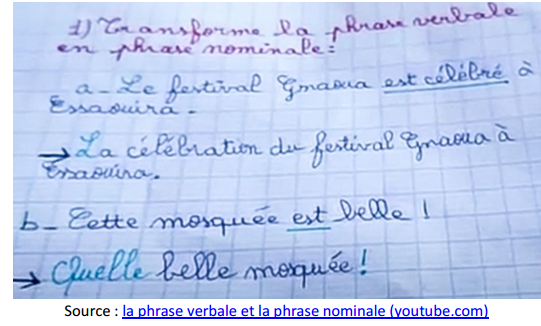 1) Transforme la phrase verbale
en phrase nominale :
a - Le festival Gnaoua est célébré à
Essaouira.
→ La célébration du festival Gnaoua à
Essaouira.
b - Cette mosquée est belle !
→ Quelle belle mosquée !
Source : la phrase verbale et la phrase nominale (youtube.com)